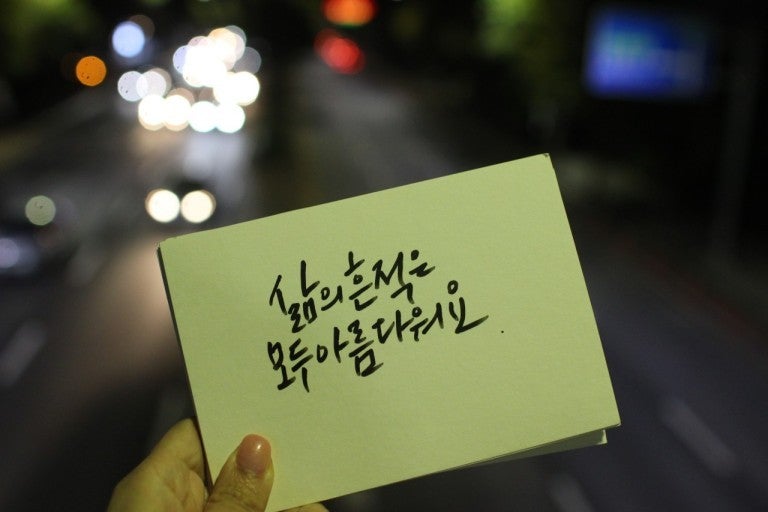 삶의 흔적은
모두 아름다워요.